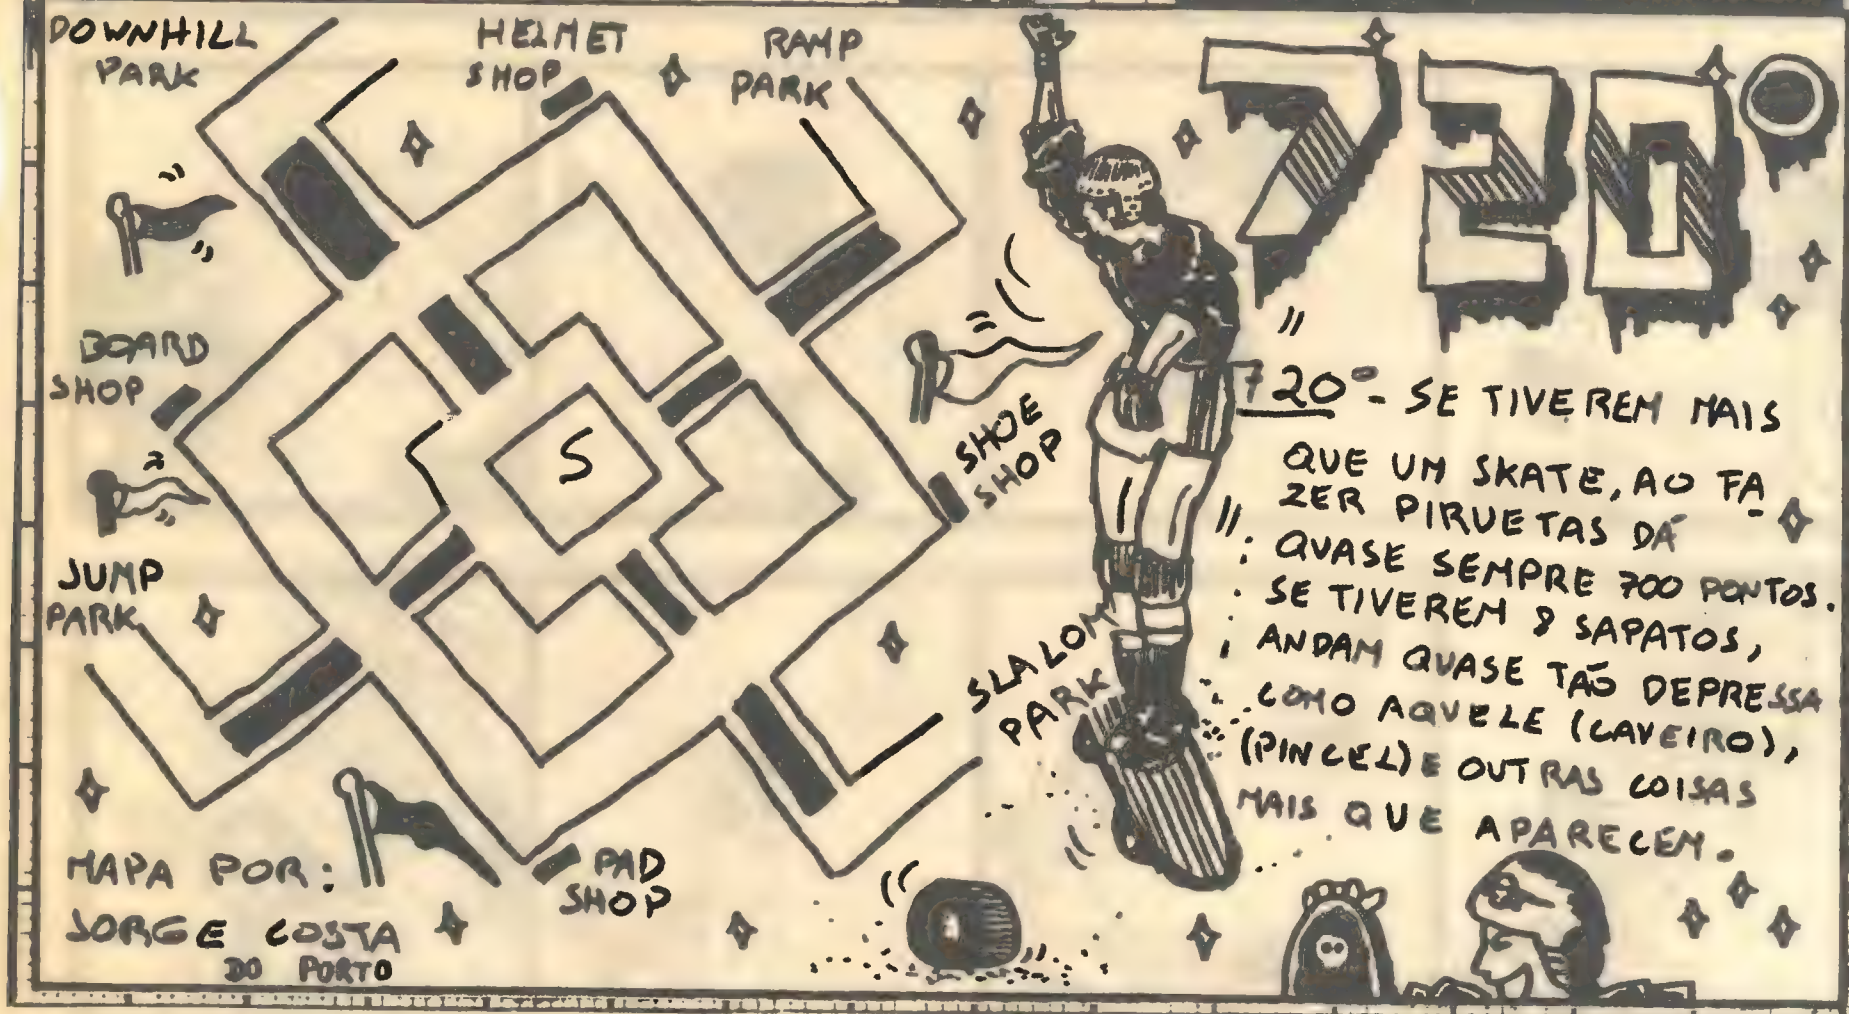 DOWNHILL
PARK
HELMET
SHOP
RAMP
PARK
720°
BOARD
SHOP
S
SHOE
SHOP
JUMP
PARK
SLALOM
PARK
PAD
SHOP
MAPA POR:
JORGE COSTA
DO PORTO
720º - SE TIVEREM MAIS
QUE UM SKATE, AO FA
ZER PIRUETAS DÁ
QUASE SEMPRE 700 PONTOS.
SE TIVEREM 8 SAPATOS,
ANDAM QUASE TÃO DEPRESSA
COMO AQUELE (CAVEIRO),
(PINCEL) E OUTRAS COISAS
MAIS QUE APARECEM.